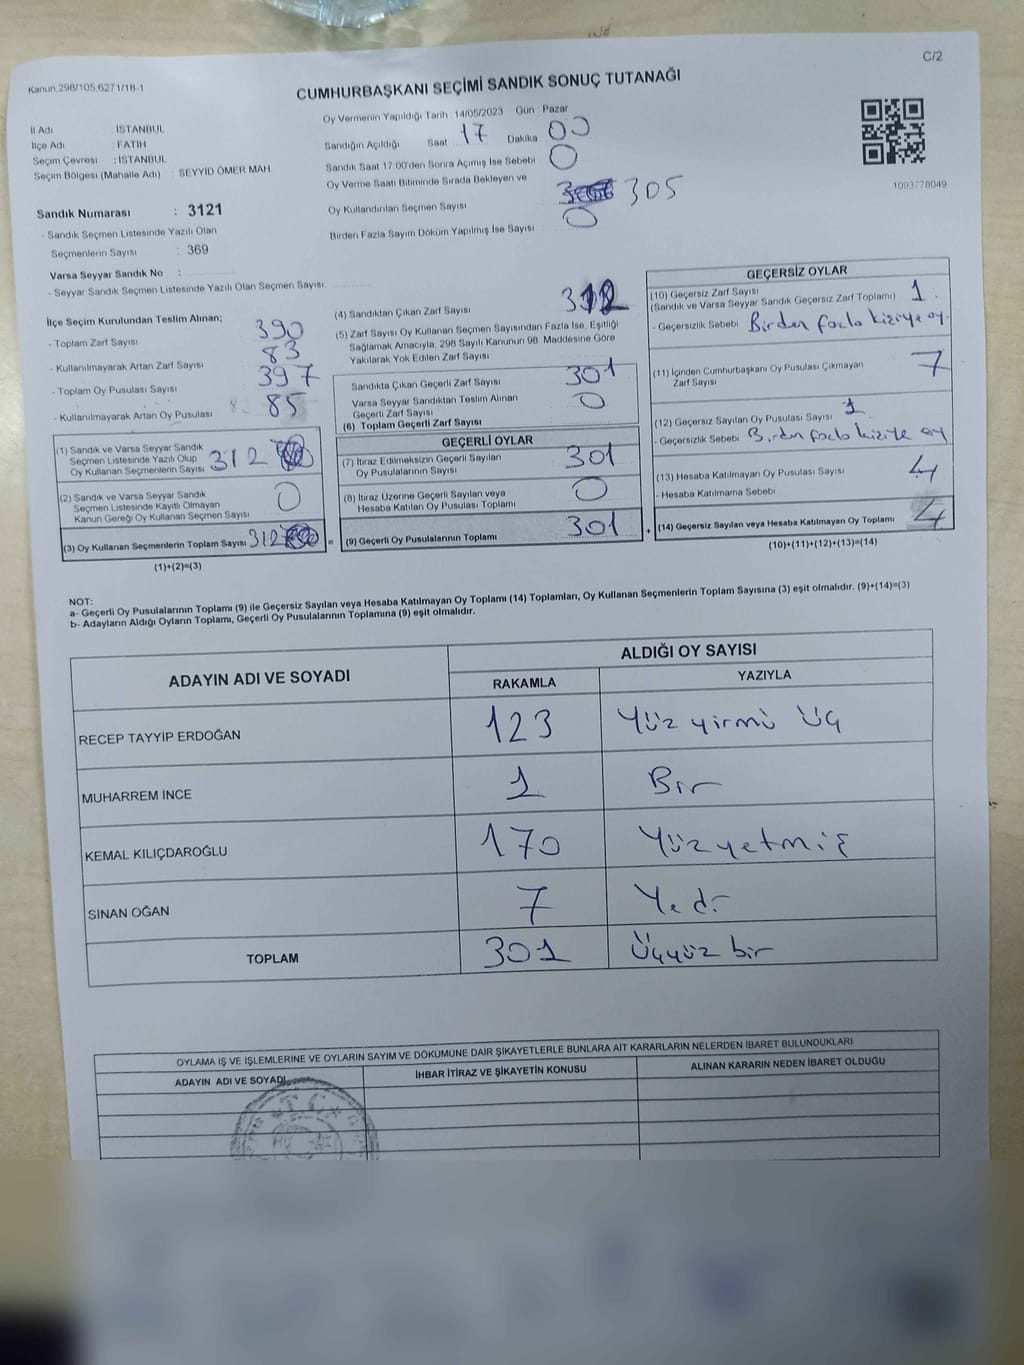 C/2
Kanun:298/105,6271/18-1
CUMHURBAŞKANI SEÇİMİ SANDIK SONUÇ TUTANAĞI
İl Adı : İSTANBUL
İlçe Adı : FATİH
Seçim Çevresi : İSTANBUL
Seçim Bölgesi (Mahalle Adı) : SEYYİD ÖMER MAH
Oy Vermenin Yapıldığı Tarih :14/05/2023 Gün : Pazar
Sandığın Açıldığı Saat 17 Dakika 00
Sandık Saat 17:00'den Sonra Açılmış İse Sebebi 0
Oy Verme Saati Bitiminde Sırada Bekleyen ve
Oy Kullandırılan Seçmen Sayısı 305
Birden Fazla Sayım Döküm Yapılmış İse Sayısı 0
1093778049
Sandık Numarası : 3121
- Sandık Seçmen Listesinde Yazılı Olan
Seçmenlerin Sayısı : 369
Varsa Seyyar Sandık No :
- Seyyar Sandık Seçmen Listesinde Yazılı Olan Seçmen Sayısı:
İlçe Seçim Kurulundan Teslim Alınan;
- Toplam Zarf Sayısı 390
- Kullanılmayarak Artan Zarf Sayısı 83
- Toplam Oy Pusulası Sayısı 397
- Kullanılmayarak Artan Oy Pusulası 85
(1) Sandık ve Varsa Seyyar Sandık
Seçmen Listesinde Yazılı Olup
Oy Kullanan Seçmenlerin Sayısı 312
(2) Sandık ve Varsa Seyyar Sandık
Seçmen Listesinde Kayıtlı Olmayan
Kanun Gereği Oy Kullanan Seçmen Sayısı 0
(3) Oy Kullanan Seçmenlerin Toplam Sayısı 312
(1)+(2)=(3)
(4) Sandıktan Çıkan Zarf Sayısı 312
(5) Zarf Sayısı Oy Kullanan Seçmen Sayısından Fazla İse, Eşitliği
Sağlamak Amacıyla, 298 Sayılı Kanunun 98. Maddesine Göre
Yakılarak Yok Edilen Zarf Sayısı
Sandıkta Çıkan Geçerli Zarf Sayısı 301
Varsa Seyyar Sandıktan Teslim Alınan
Geçerli Zarf Sayısı 0
(6) Toplam Geçerli Zarf Sayısı
GEÇERLİ OYLAR
(7) İtiraz Edilmeksizin Geçerli Sayılan
Oy Pusulalarının Sayısı 301
(8) İtiraz Üzerine Geçerli Sayılan veya
Hesaba Katılan Oy Pusulası Toplamı 0
= (9) Geçerli Oy Pusulalarının Toplamı 301 +
GEÇERSİZ OYLAR
(10) Geçersiz Zarf Sayısı
(Sandık ve Varsa Seyyar Sandık Geçersiz Zarf Toplamı) 1
- Geçersizlik Sebebi Birden fazla kişiye oy.
(11) İçinden Cumhurbaşkanı Oy Pusulası Çıkmayan
Zarf Sayısı 7
(12) Geçersiz Sayılan Oy Pusulası Sayısı 1
- Geçersizlik Sebebi Birden fazla kişiye oy
(13) Hesaba Katılmayan Oy Pusulası Sayısı 4
- Hesaba Katılmama Sebebi
(14) Geçersiz Sayılan veya Hesaba Katılmayan Oy Toplamı 4
(10)+(11)+(12)+(13)=(14)
NOT:
a- Geçerli Oy Pusulalarının Toplamı (9) ile Geçersiz Sayılan veya Hesaba Katılmayan Oy Toplamı (14) Toplamları, Oy Kullanan Seçmenlerin Toplam Sayısına (3) eşit olmalıdır. (9)+(14)=(3)
b- Adayların Aldığı Oyların Toplamı, Geçerli Oy Pusulalarının Toplamına (9) eşit olmalıdır.
ADAYIN ADI VE SOYADI
ALDIĞI OY SAYISI
RAKAMLA YAZIYLA
RECEP TAYYİP ERDOĞAN 123 Yüz yirmi üç
MUHARREM İNCE 1 Bir
KEMAL KILIÇDAROĞLU 170 Yüzyetmiş
SİNAN OĞAN 7 Yedi
TOPLAM 301 Üçyüz bir
OYLAMA İŞ VE İŞLEMLERİNE VE OYLARIN SAYIM VE DÖKÜMÜNE DAİR ŞİKAYETLERLE BUNLARA AİT KARARLARIN NELERDEN İBARET BULUNDUKLARI
ADAYIN ADI VE SOYADI İHBAR İTİRAZ VE ŞİKAYETİN KONUSU ALINAN KARARIN NEDEN İBARET OLDUĞU
T.C.